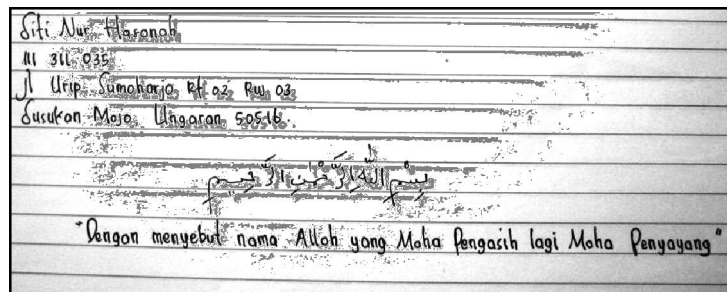 Siti Nur Hasanah
111 311 035
Jl Urip Sumoharjo Rt 02 Rw 03
Susukan Mojo Ungaran 50516.
بِسْمِ اللَّهِ الرَّحْمٰنِ الرَّحِيْمِ
"Dengan menyebut nama Alloh yang Maha Pengasih lagi Maha Penyayang"